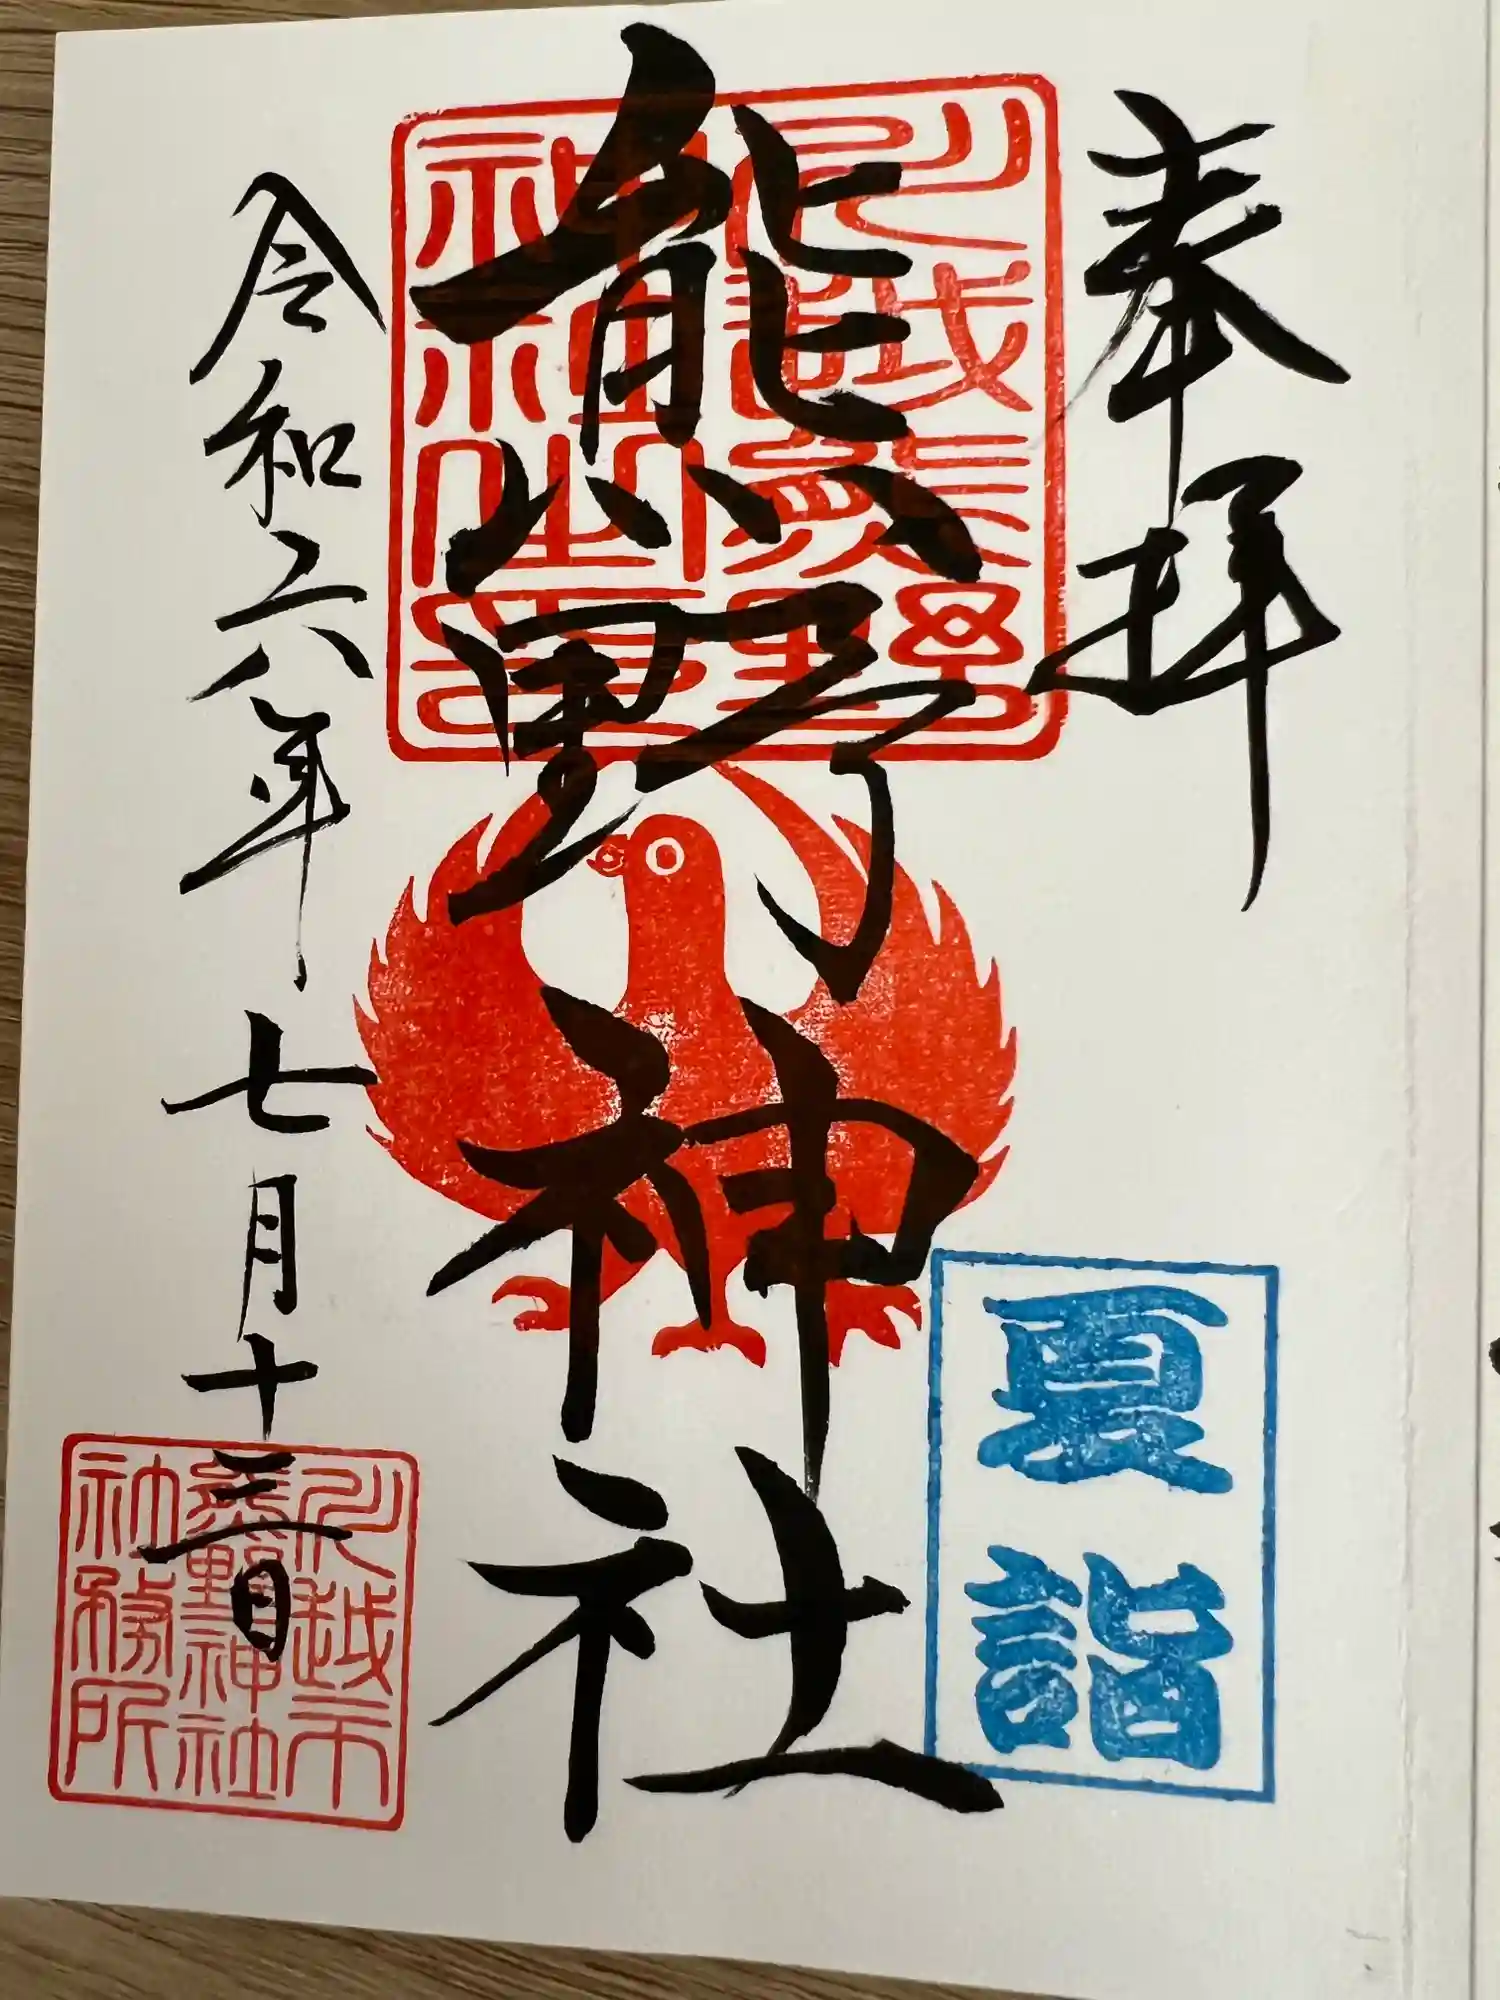 奉拝
川越熊野
神社
熊野神社
夏詣
令和六年七月十三日
川越市
熊野神社
社務所